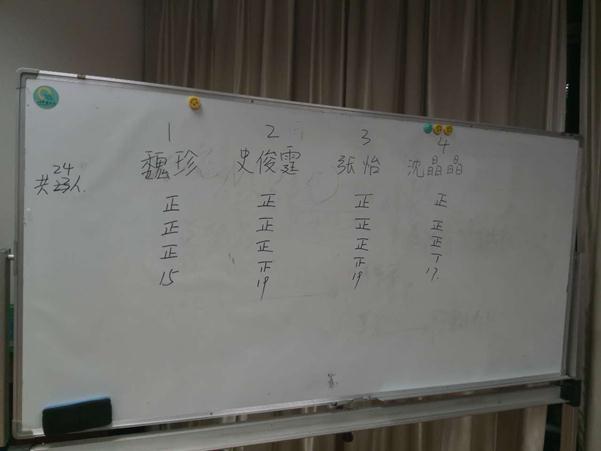 1 2 3 4
魏珍 史俊霆 张怡 沈晶晶
24
共23人
正 正 正 正
正 正 正 正
正 正 正 正
15 正 正 丅
19 19 17.